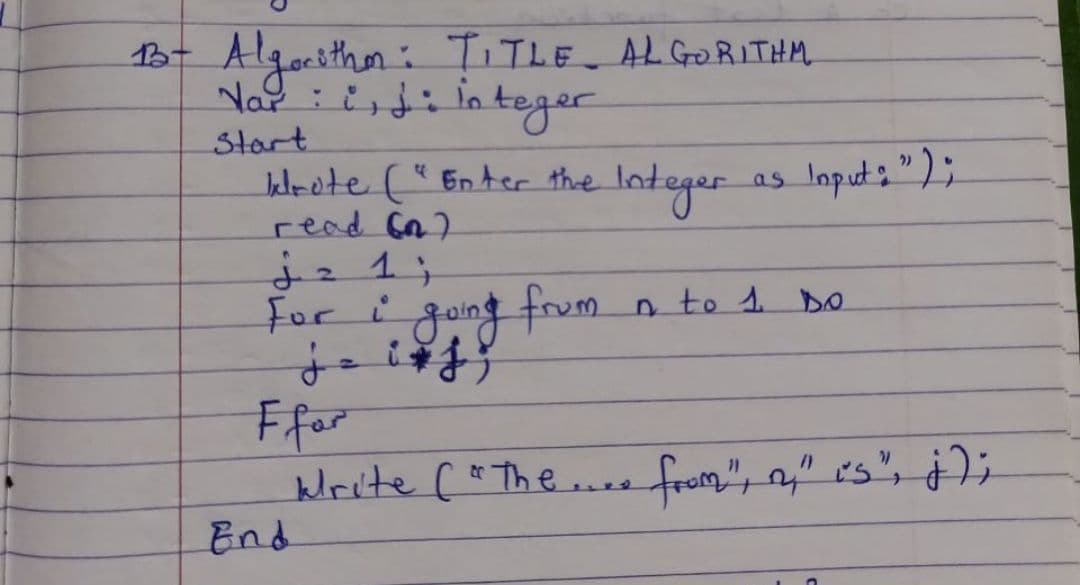 13- Algorithm : TITLE_ALGORITHM
Var : i, j : integer
Start
Wrote ("Enter the Integer as Input:");
read (n)
j = 1 ;
For i going from n to 1 DO
j = i * j ;
Ffor
Write ("The .... from", n," is", j);
End